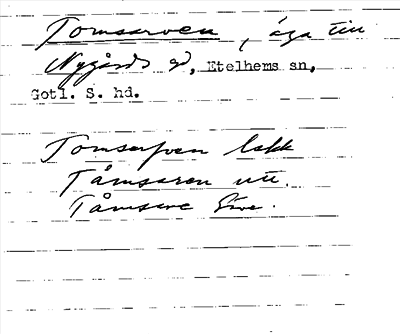 Tomsarven, äga till
Nygårds gd, Etelhems sn,
Gotl. S. hd.
Tomsarfven
Tåmsaren utt.
Tåmsarve